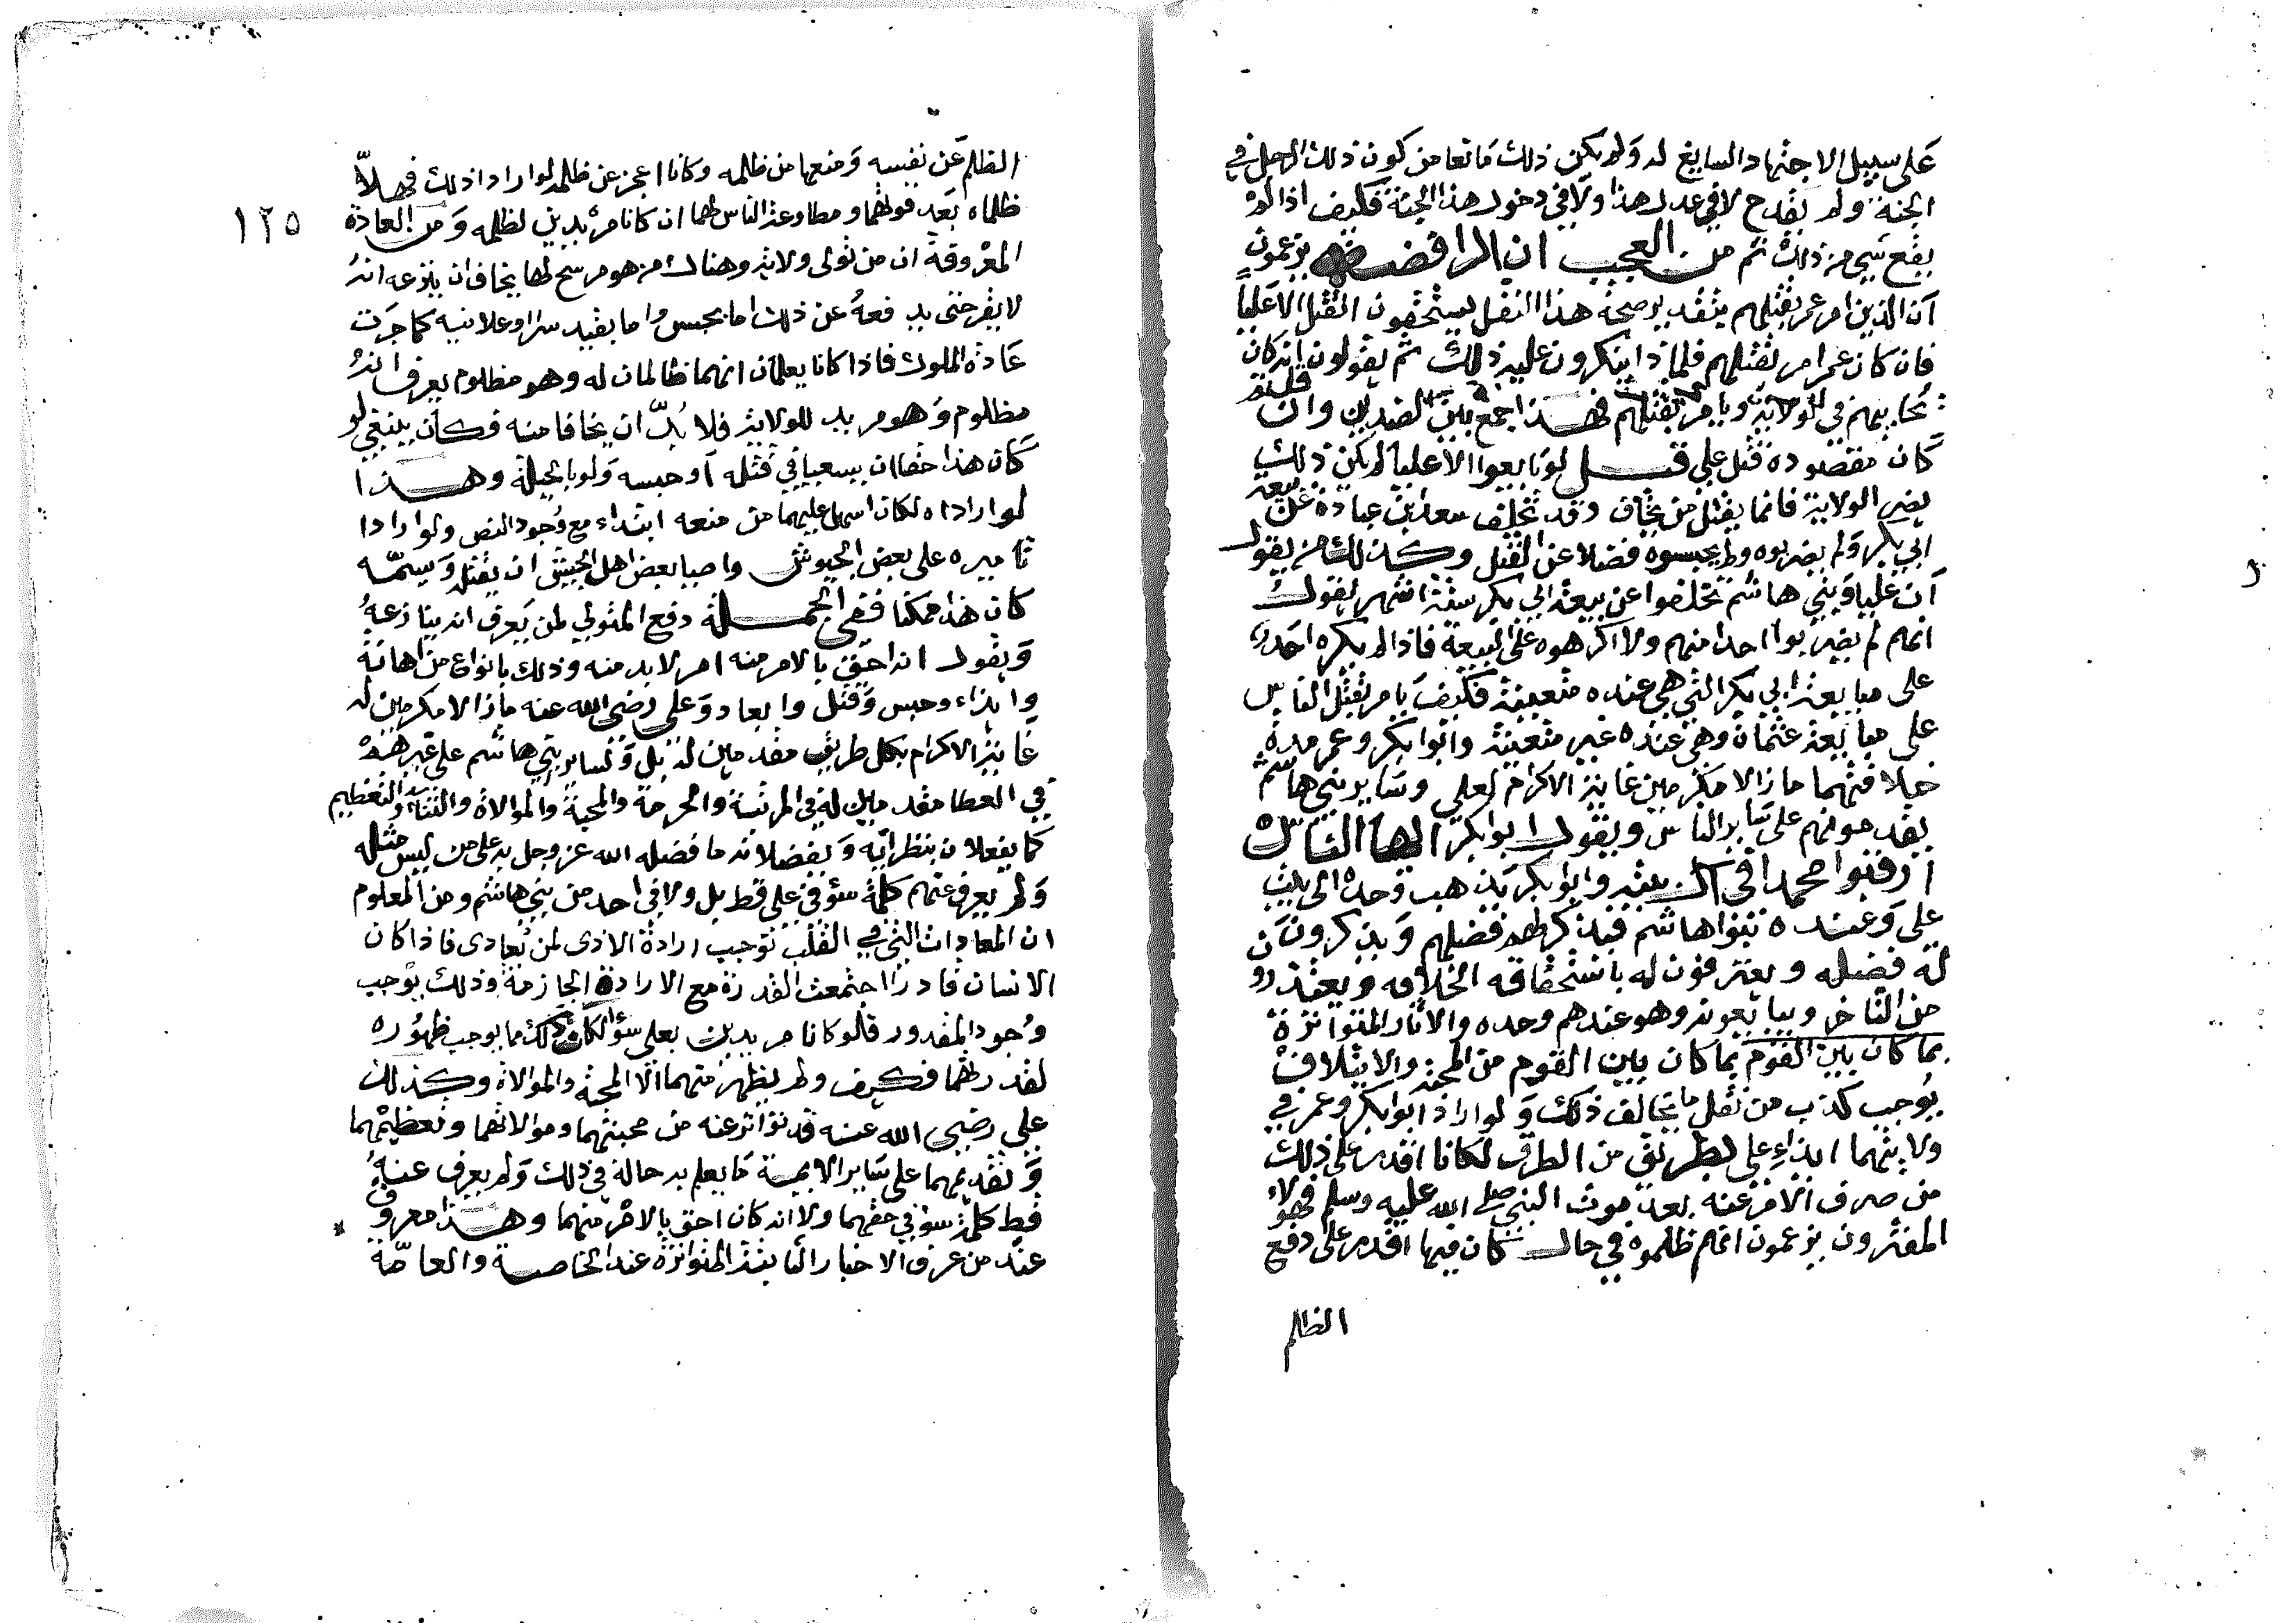 على سبيل الاجتهاد السايغ له ولم يكن ذلك مانعا من كون ذلك الرجل في
الجنة ولم يقدح لا في عدل هذا ولا في دخول هذا الجنة فكيف اذا لم
يقع شي من ذلك ثم من العجب ان الرافضه يزعمون
ان الذين امر عمر بقتلهم بتقدير صحة هذا النقل يستحقون القتل الا عليا
فان كان عمر امر بقتلهم فلماذا ينكرون عليه ذلك ثم يقولون انه كان
يحابيهم في الولاية ويامر بقتلهم فهذا جمع بين الضدين وان قلتم
كان مقصوده قتل علي قيل لو بايعوا الا عليا لم يكن ذلك
يضر الولاية فانما يقتل من يخاف وقد تخلف سعد بن عبادة عن بيعة
ابي بكر ولم يضربوه ولم يحبسوه فضلا عن القتل وكذلك من يقول
ان عليا وبني هاشم تخلفوا عن بيعة ابي بكر ستة اشهر يقول
انهم لم يضربوا احدا منهم ولا اكرهوه على البيعة فاذا لم يكره احد
على مبايعة ابي بكر التي هي عنده متعينة فكيف يامر بقتل الناس
على مبايعة عثمان وهي عنده غير متعينة وابو بكر وعمر مدة
خلافتهما مازالا مكرمين غاية الاكرام لعلي وساير بني هاشم
يقدمونهم على ساير الناس ويقول ابو بكر ايها الناس
ارقبوا محمدا في ال بيته وابو بكر يذهب وحده الى بيت
علي وعنده بنوا هاشم فيذكر لهم فضلهم ويذكرون
له فضله ويعترفون له باستحقاقه الخلافه ويعتذرون
من التاخر ويبايعونه وهو عندهم وحده والاثار المتواترة
بما كان بين القوم بما كان بين القوم من المحبة والايتلاف
يوجب كذب من نقل ما يخالف ذلك ولو اراد ابو بكر وعمر في
ولايتهما ايذاء علي بطريق من الطرق لكانا اقدر على ذلك
من صرف الامر عنه بعد موت النبي صلى الله عليه وسلم فهولاء
المفترون يزعمون انهم ظلموه في حال كان فيها اقدر على دفع
الظلم
١٢٥
الظلم عن نفسه ومنعهما من ظلمه وكانا اعجز عن ظلمه لو ارادا ذلك فهلا
ظلماه بعد قوتهما ومطاوعة الناس لهما ان كانا مريدين لظلمه ومن العادة
المعروفة ان من تولى ولاية وهناك من هو مرشح لها يخاف ان ينازعه انه
لا يقر حتى يدفعه عن ذلك اما بحبس واما بقيد سرا وعلانيه كما جرت
عادة الملوك فاذا كانا يعلمان انهما ظالمان له وهو مظلوم يعرف انه
مظلوم وهو مريد للولاية فلا بد ان يخافا منه فكان ينبغي لو
كان هذا حقا ان يسعيا في قتله او حبسه ولو بالحيلة وهذا
لو اراداه لكان اسهل عليهما من منعه ابتداء مع وجود النص ولو ارادا
تاميره على بعض الجيوش واصيا بعض اهل الجيش ان يقتله ويسمه
كان هذا ممكنا ففي الجملة دفع المتولي لمن يعرف انه ينازعه
ويقول انه احق بالامر منه امر لا بد منه وذلك بانواع من اهانة
وايذاء وحبس وقتل وابعاد وعلي رضي الله عنه مازالا مكرمين له
غاية الاكرام بكل طريق مقدمين له بل ولساير بني هاشم على غيرهم
في العطا مقدمين له في المرتبة والحرمة والمحبة والموالاة والثناء والتعظيم
كما يفعلان بنظرائه ويفضلانه بما فضله الله عز وجل به على من ليس مثله
ولم يعرف عنهم كلمة سؤ في علي قط بل ولا في احد من بني هاشم ومن المعلوم
ان المعادات التي في القلب توجب ارادة الاذى لمن يعادى فاذا كان
الانسان قادرا اجتمعت القدرة مع الارادة الجازمة وذلك يوجب
وجود المقدور فلو كانا مريدين بعلي سؤا لكان ذلك مما يوجب ظهوره
لقدرتهما فكيف ولم يظهر منهما الا المحبة والموالاة وكذلك
علي رضي الله عنه قد تواتر عنه من محبتهما وموالاتهما وتعظيمهما
وتقديمهما على ساير الايمة ما يعلم به حاله في ذلك ولم يعرف عنه
قط كلمة سؤ في حقهما ولا انه كان احق بالامر منهما وهذا معروف
عند من عرف الاخبار الثابتة المتواترة عند الخاصة والعامة